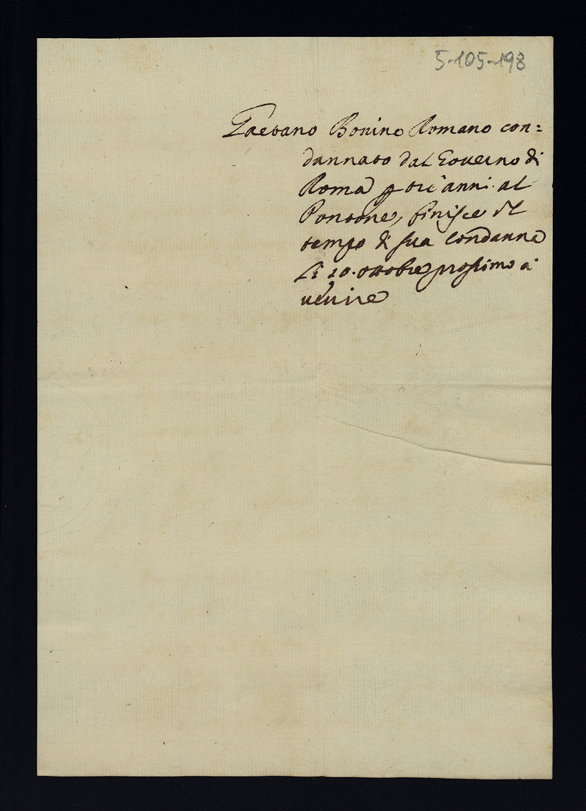 5-105-198
Gaetano Bonino Romano con=
dannato dal Governo di
Roma p tre anni al
Pontone, finisce il
tempo di sua Condanna
li 20. ottobre prossimo à
venire